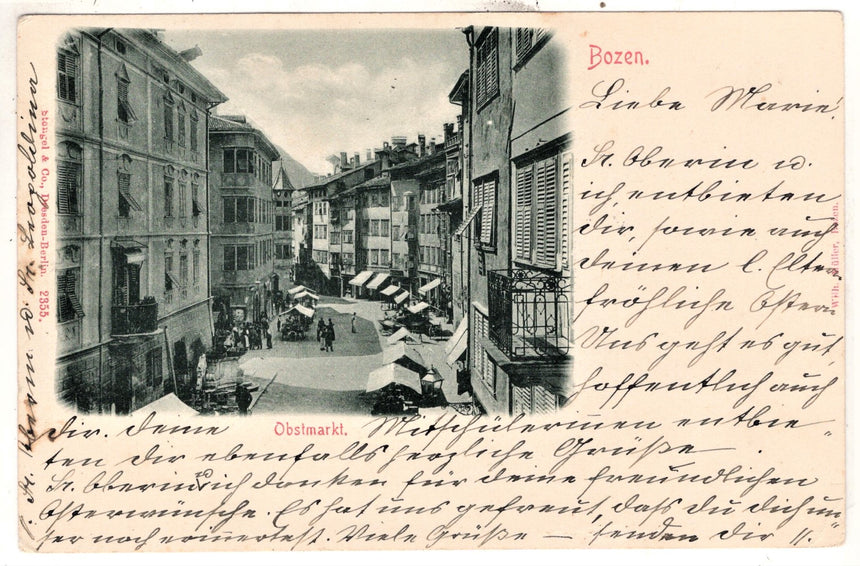 Bozen.
Liebe Marie!
Sr. Oberin u.
ich, entbieten
dir, sowie auch
deinen l. Eltern
fröhliche Ostern.
Uns geht es gut,
hoffentlich auch
dir. Deine Mitschülerinnen entbie-
ten dir ebenfalls herzliche Grüße.
Sr. Oberin u. ich danken für deine freundlichen
Osterwünsche. Es hat uns gefreut, dass du dich un-
ser noch erinnertest. Viele Grüße – senden Dir
Sr. Oberin u. Sr. Leopoldina
Obstmarkt.
Stengel & Co., Dresden-Berlin. 2355.
Wilh. Müller, Bozen.